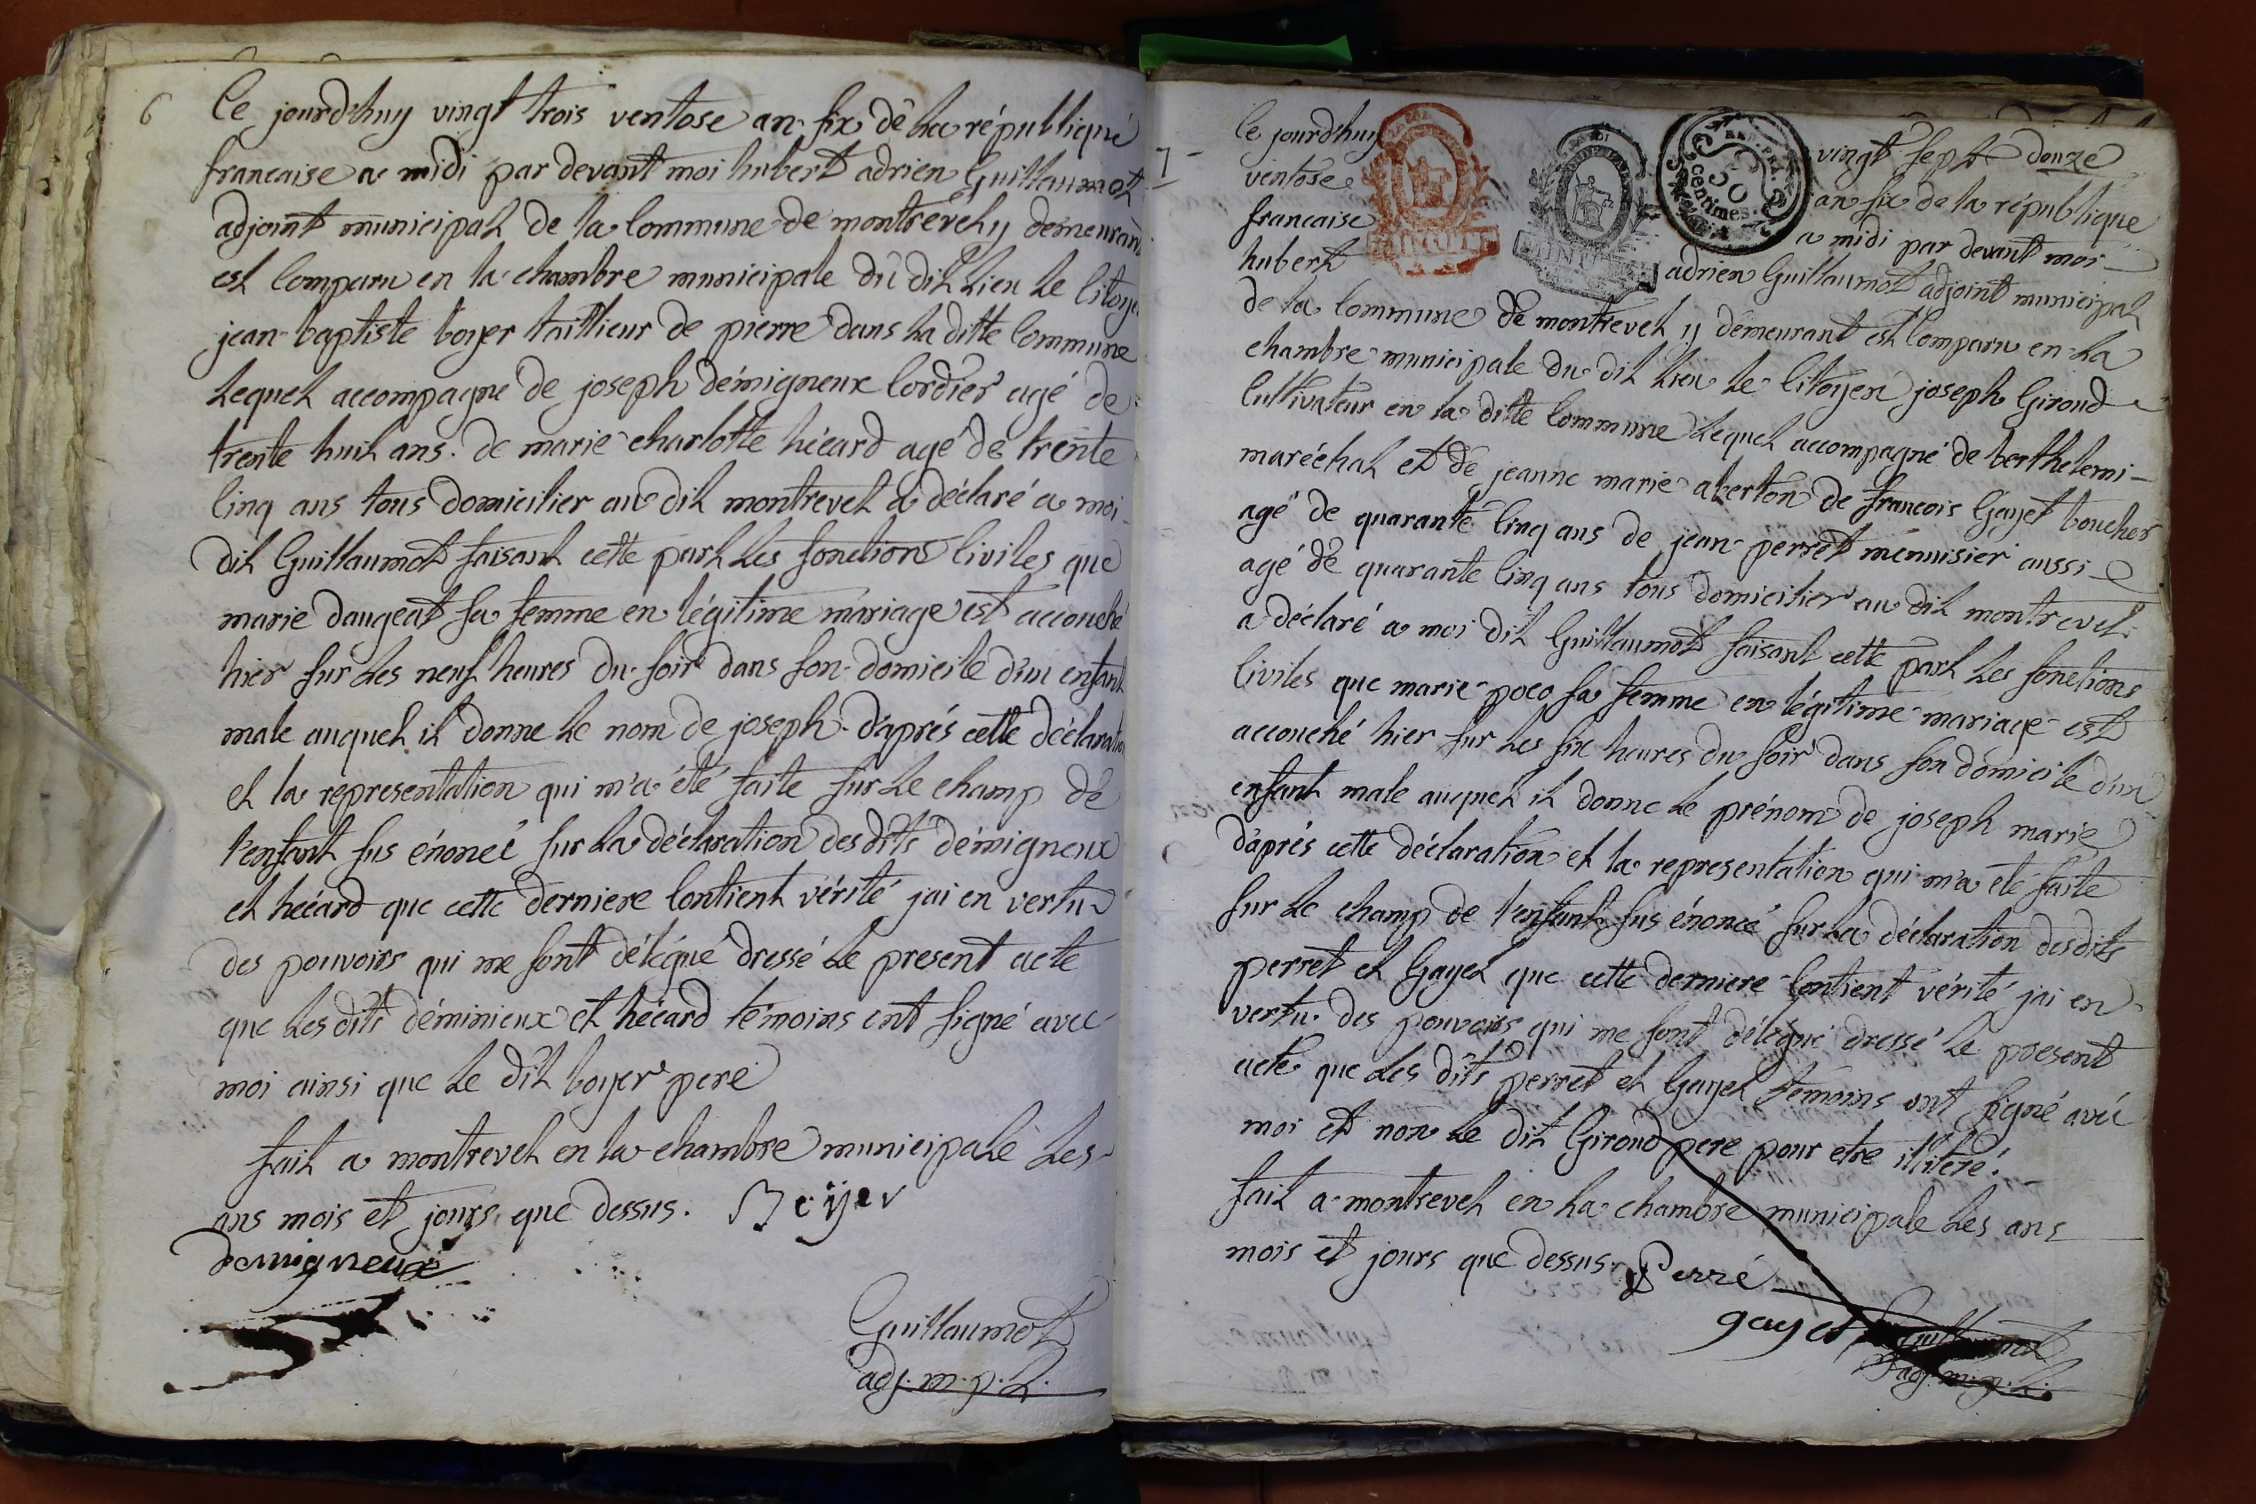 6
Ce jourd'huy vingt trois ventose an six de la république
francaise a midi par devant moi hubert adrien Guillaumot
adjoint municipal de la Commune de montrevel y demeurant
est Comparu en la chambre municipale du dit lieu le Citoyen
jean baptiste boyer taillieur de pierre dans la ditte Commune
lequel accompagné de joseph démigneux Cordier agé de
trente huit ans. de marie charlotte hécard agé de trente
Cinq ans tous domicilier au dit montrevel a déclaré a moi
dit Guillaumot faisant cette part les fonctions Civiles que
marie daugeat sa femme en légitime mariage est accouché
hier sur les neuf heures du soir dans son domicile d'un enfant
male auquel il donne le nom de joseph d'aprés cette déclaration
et la representation qui m'a été faite sur le champ de
l'enfant sus énoncé sur la déclaration desdits démigneux
et hécard que cette derniere Contient vérité jai en vertu
des pouvoirs qui me sont délégué dressé le present acte
que les dits déminieux et hécard témoins ont signé avec
moi ainsi que le dit boyer pere
fait a montrevel en la chambre municipale les
ans mois et jours que dessus. Boÿer
demigneux
Guillaumot
adj. m. p. l.
7
Ce jourd'huy vingt sept douze
ventose an six de la république
francaise a midi par devant moi
hubert adrien Guillaumot adjoint municipal
de la Commune de montrevel y demeurant est Comparu en la
chambre municipale du dit lieu le Citoyen joseph Giroud
Cultivateur en la ditte Commune lequel accompagné de berthelemi
maréchal et de jeanne marie alerton de francois Gayet boucher
agé de quarante Cinq ans de jean perret menuisier aussi
agé de quarante Cinq ans tous domicilier au dit montrevel
a déclaré a moi dit Guillaumot faisant cette part les fonctions
Civiles que marie poco sa femme en légitime mariage est
accouché hier sur les six heures du soir dans son domicile d'un
enfant male auquel il donne le prénom de joseph marie
d'aprés cette déclaration et la representation qui m'a été faite
sur le champ de l'enfant sus énoncé sur la déclaration desdits
perret et Gayet que cette derniere Contient vérité jai en
vertu des pouvoirs qui me sont délégué dressé le present
acte que les dits perret et Gayet témoins ont signé avec
moi et non le dit Giroud pere pour etre illiteré.
fait a montrevel en la chambre municipale les ans
mois et jours que dessus. Perré
gayet Guillaumot
adj. m. p. l.
50
centimes.